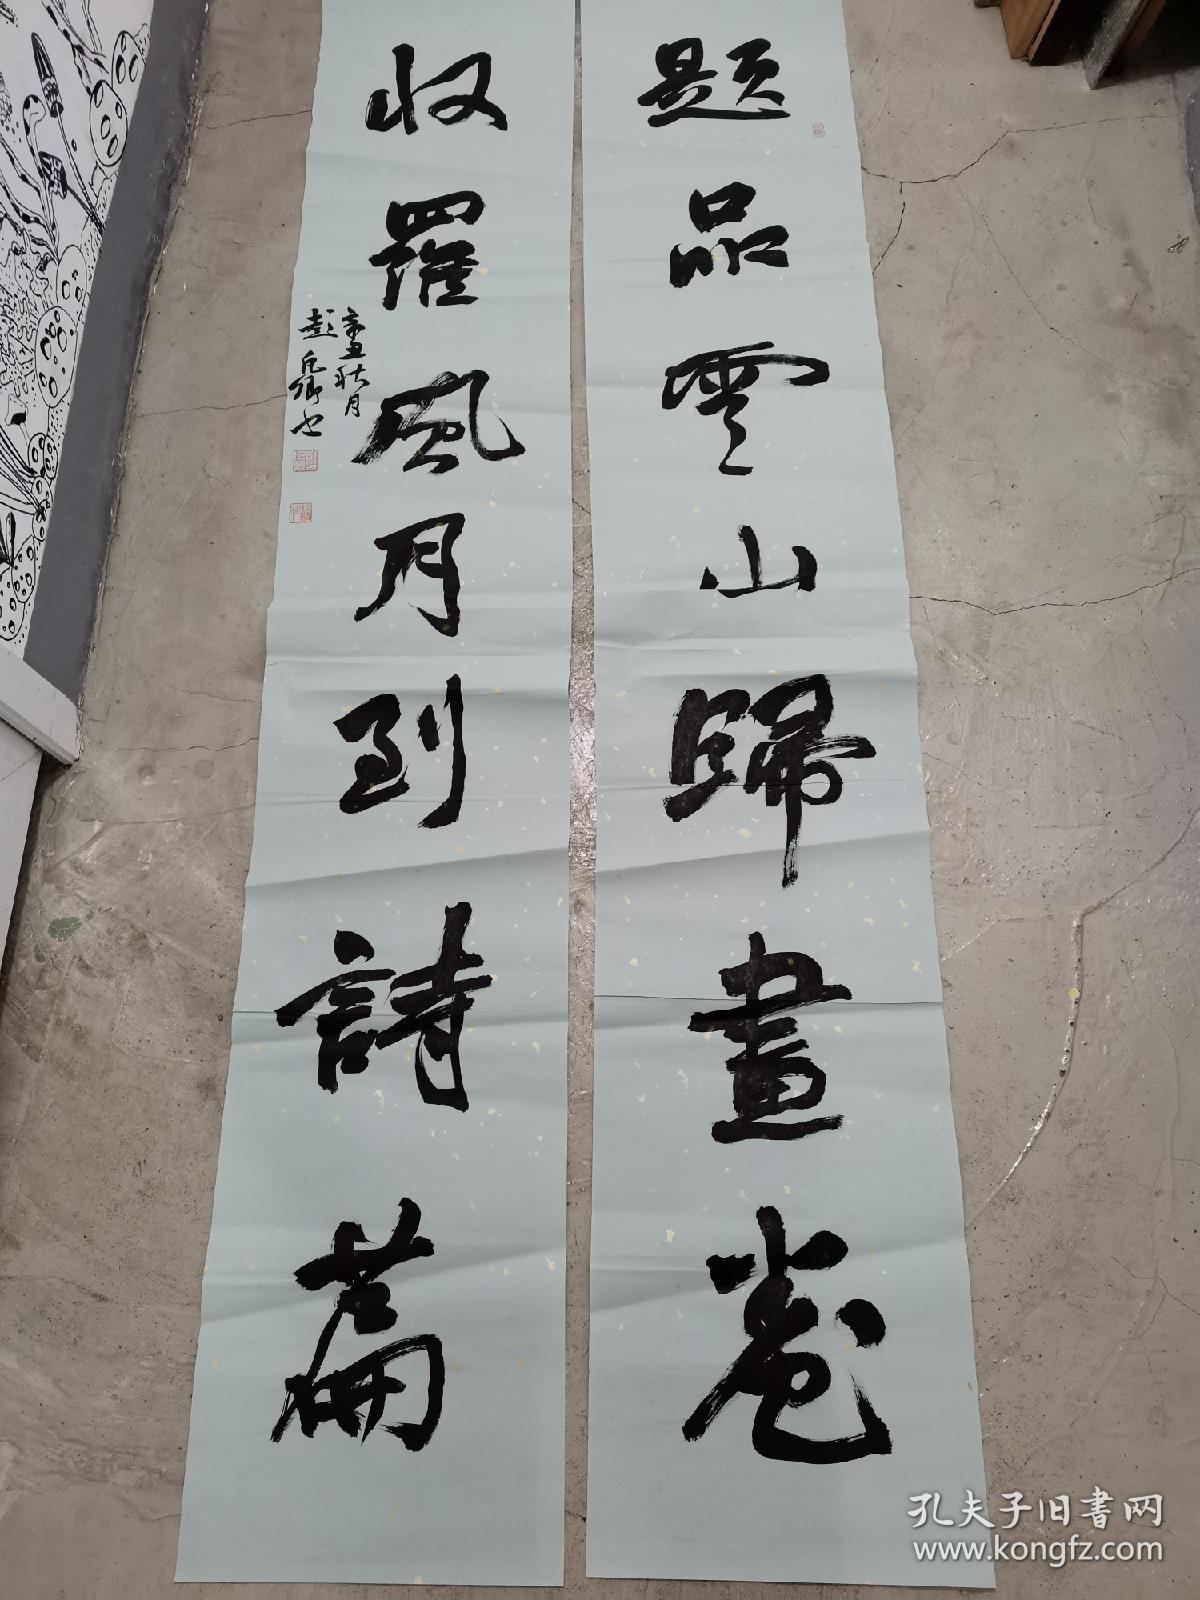 题品雲山歸畫卷
收羅風月到詩篇
辛丑秋月
孔夫子旧書网
www.kongfz.com